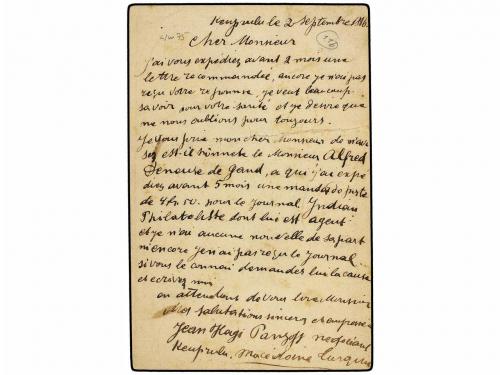 Keuprulu le 2 Septembre 1896.
c/w 75
110
Cher Monsieur
j'ai vous expédiez avant 2 mois une
lettre recommandée, ancore je n'ai pas
reçu votre reponse, je veut beaucoup
savoir pour votre santé et je desire que
ne nous oublions pour toujours.
Je vous prie mon cher Monsieur de
sez est-il honnete le Monsieur Alfred
Deneuse de gand, a qui j'ai expé
diez avant 5 mois une mandas de poste
de 4 fr 50. pour le journal Indian
Philateliste dont lui est agent
et je n'ai aucune nouvelle de sa part
m'encore je n'ai pas reçu le Journal.
si vous le connai demandez lui la cause
et ecrivez moi
en attendans de vous lire Monsieur
Mes salutations sincers
Jean Hagi Panzoff negosiant
Keuprulu. Macedoine Turquie